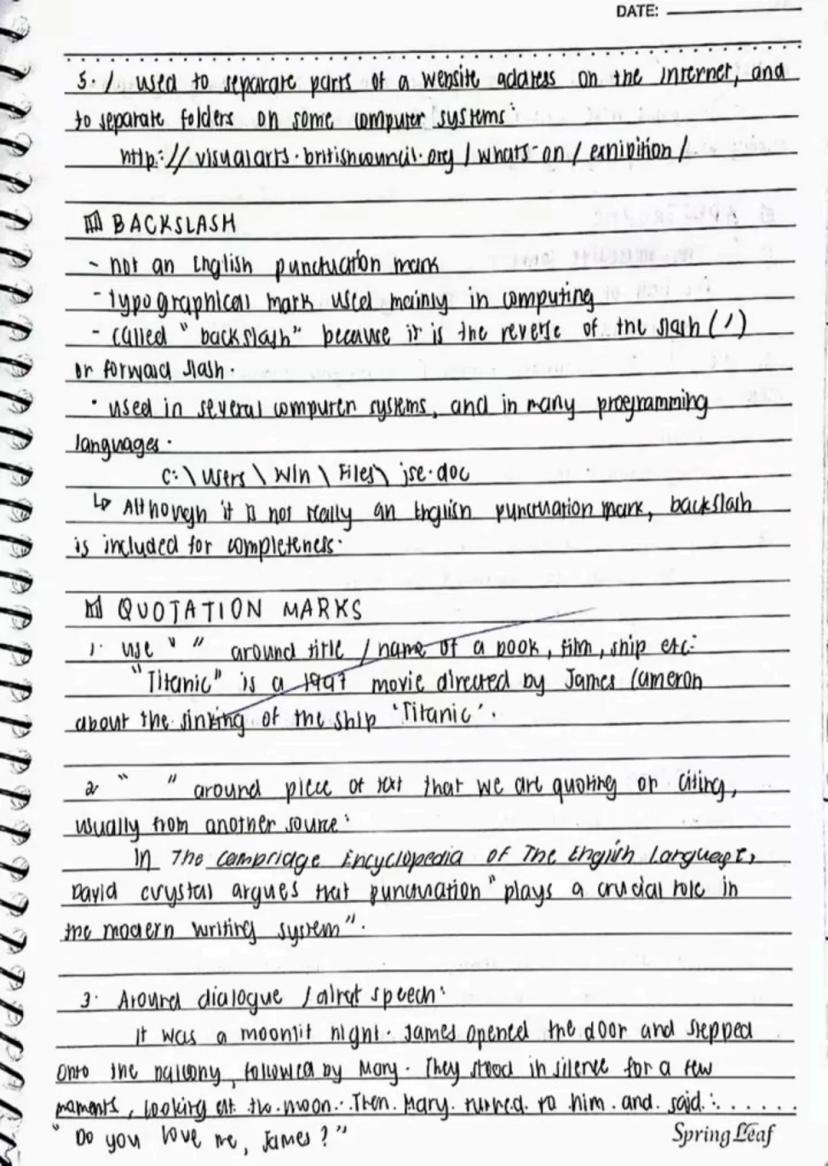 DATE:
5. / used to separate parts of a website address on the internet, and
to separate folders on some computer systems:
http://visualarts.britishcouncil.org/whats-on/exhibition/
BACKSLASH
- not an English punctuation mark
- typographical mark used mainly in computing
- called "backslash" because it is the reverse of the slash (/)
or forward slash.
· used in several computer systems, and in many programming
languages.
C:\Users\Win\Files\jse.doc
↳ Although it is not really an English punctuation mark, backslash
is included for completeness.
QUOTATION MARKS
1. use " " around title / name of a book, film, ship etc:
"Titanic" is a 1997 movie directed by James Cameron
about the sinking of the ship 'Titanic'.
2. " " around piece of text that we are quoting or citing,
usually from another source:
In The Cambridge Encyclopedia of The English Language,
David Crystal argues that punctuation "plays a crucial role in
the modern writing system".
3. Around dialogue / direct speech:
It was a moonlit night. James opened the door and stepped
onto the balcony, followed by Mary. They stood in silence for a few
moments, looking at the moon. Then Mary turned to him and said:
"Do you love me, James?"
SpringLeaf